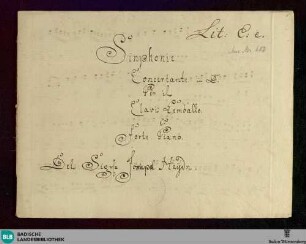 Lit: C: c.
Sinphonie
Concertante
Per il
Clavi Cembalo
Forte Piano
Del Sigre Joseph Haydn
BLB
BADISCHE
LANDESBIBLIOTHEK
Baden-Württemberg